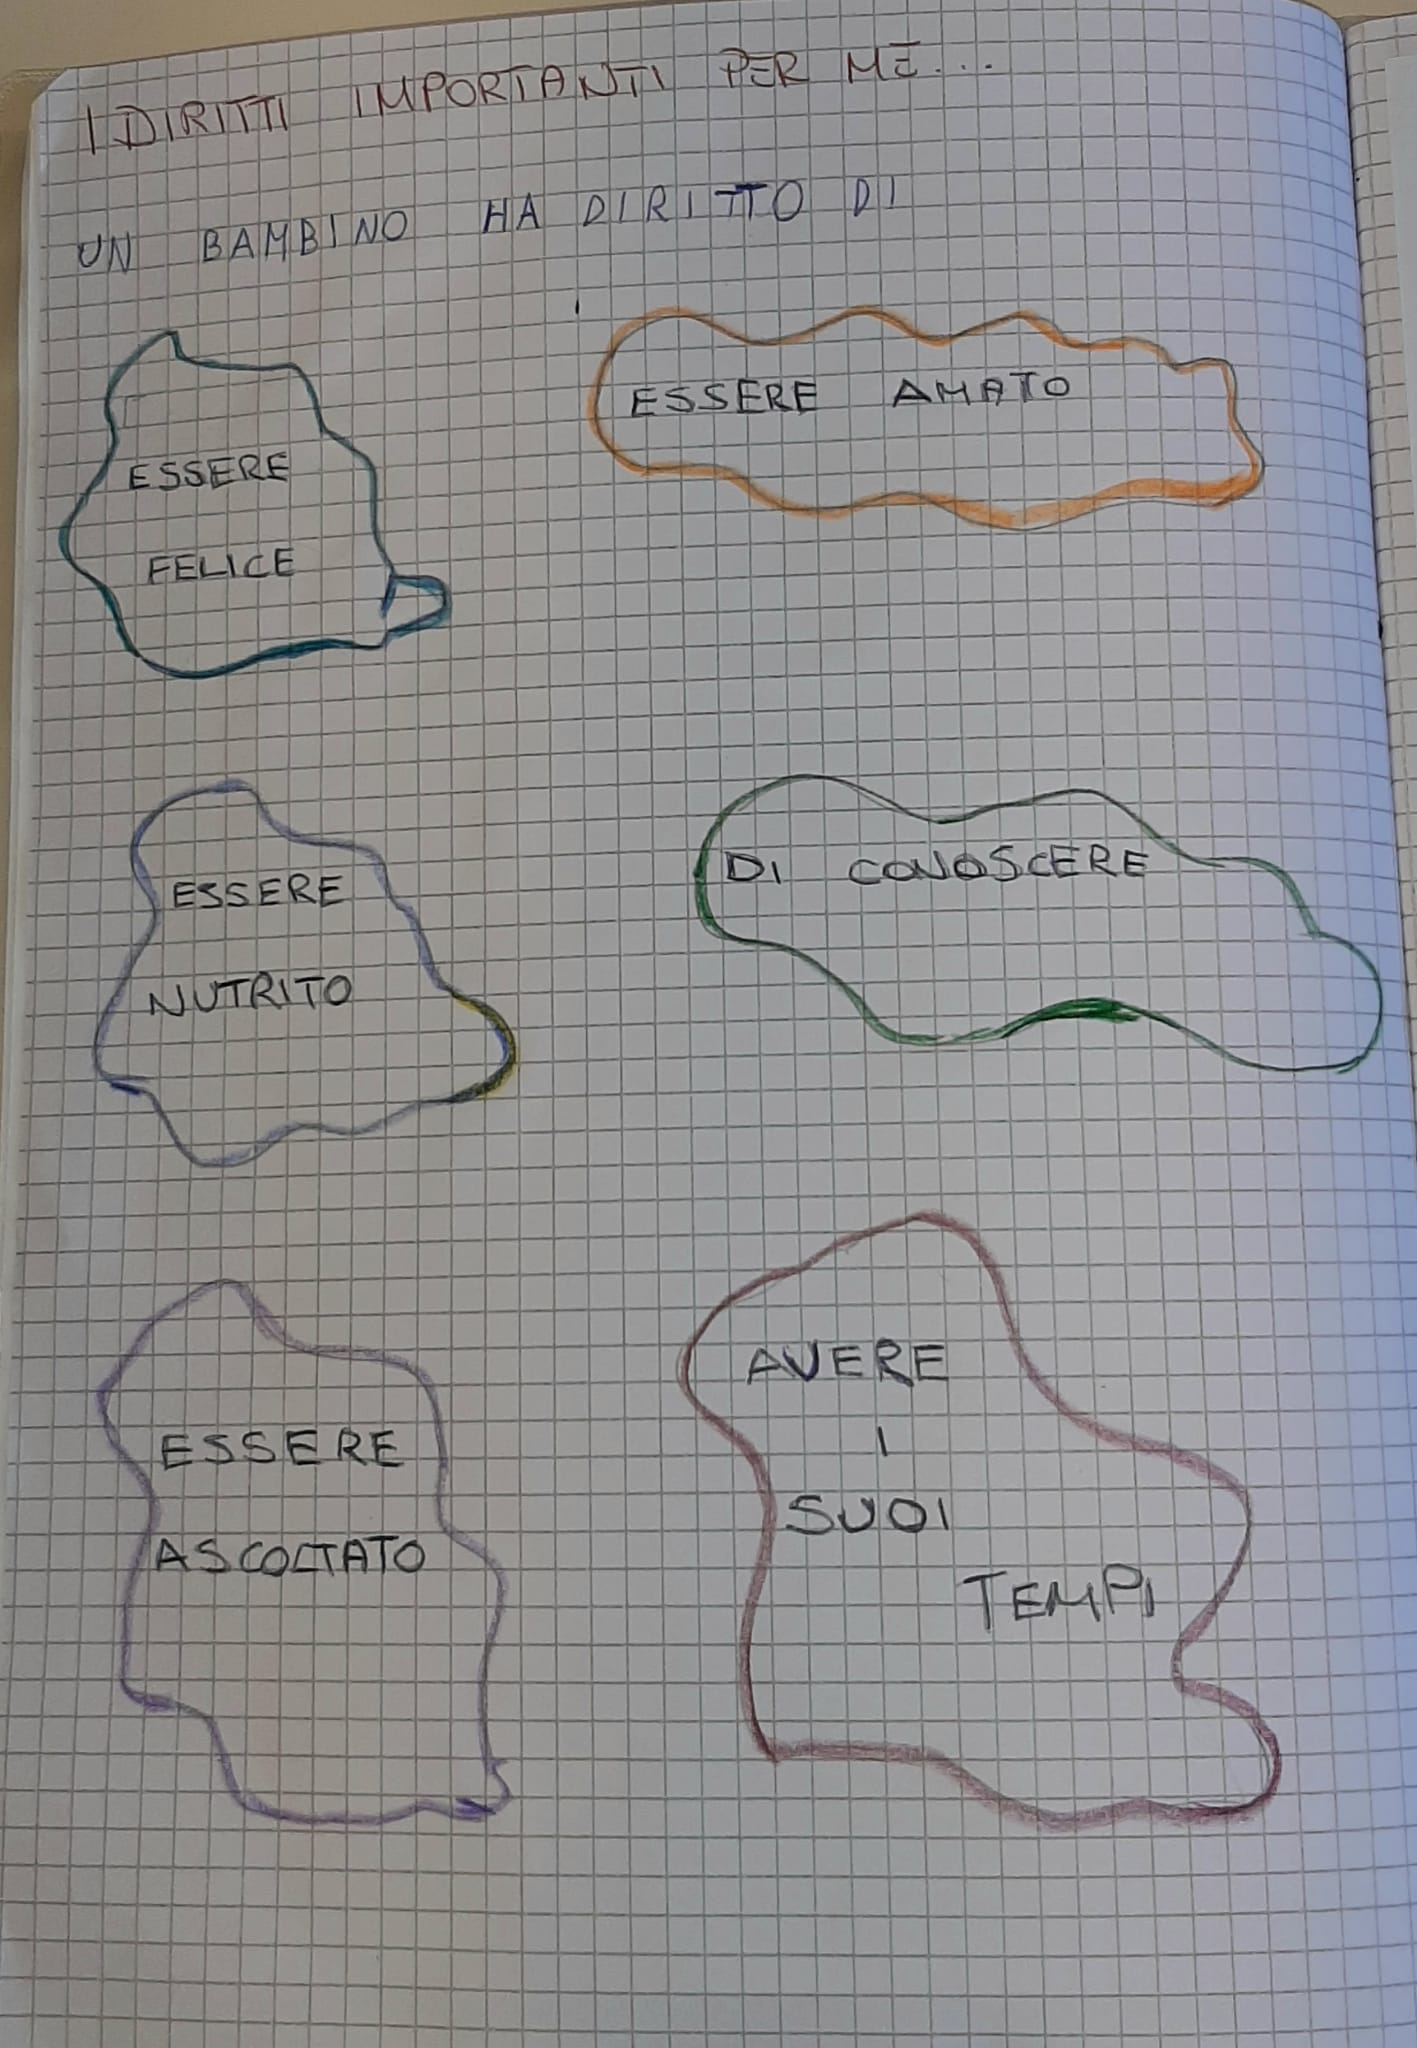 I DIRITTI IMPORTANTI PER ME...
UN BAMBINO HA DIRITTO DI
ESSERE
FELICE
ESSERE AMATO
ESSERE
NUTRITO
DI CONOSCERE
ESSERE
ASCOLTATO
AVERE
I
SUOI
TEMPI